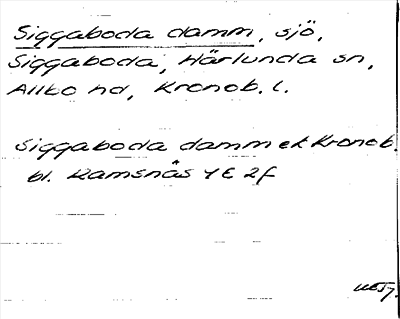 Siggaboda damm, sjö,
Siggaboda, Härlunda sn,
Allbo hd, Kronob. l.
Siggaboda damm ek Kronob.
bl. Ramsnäs 4E 2f